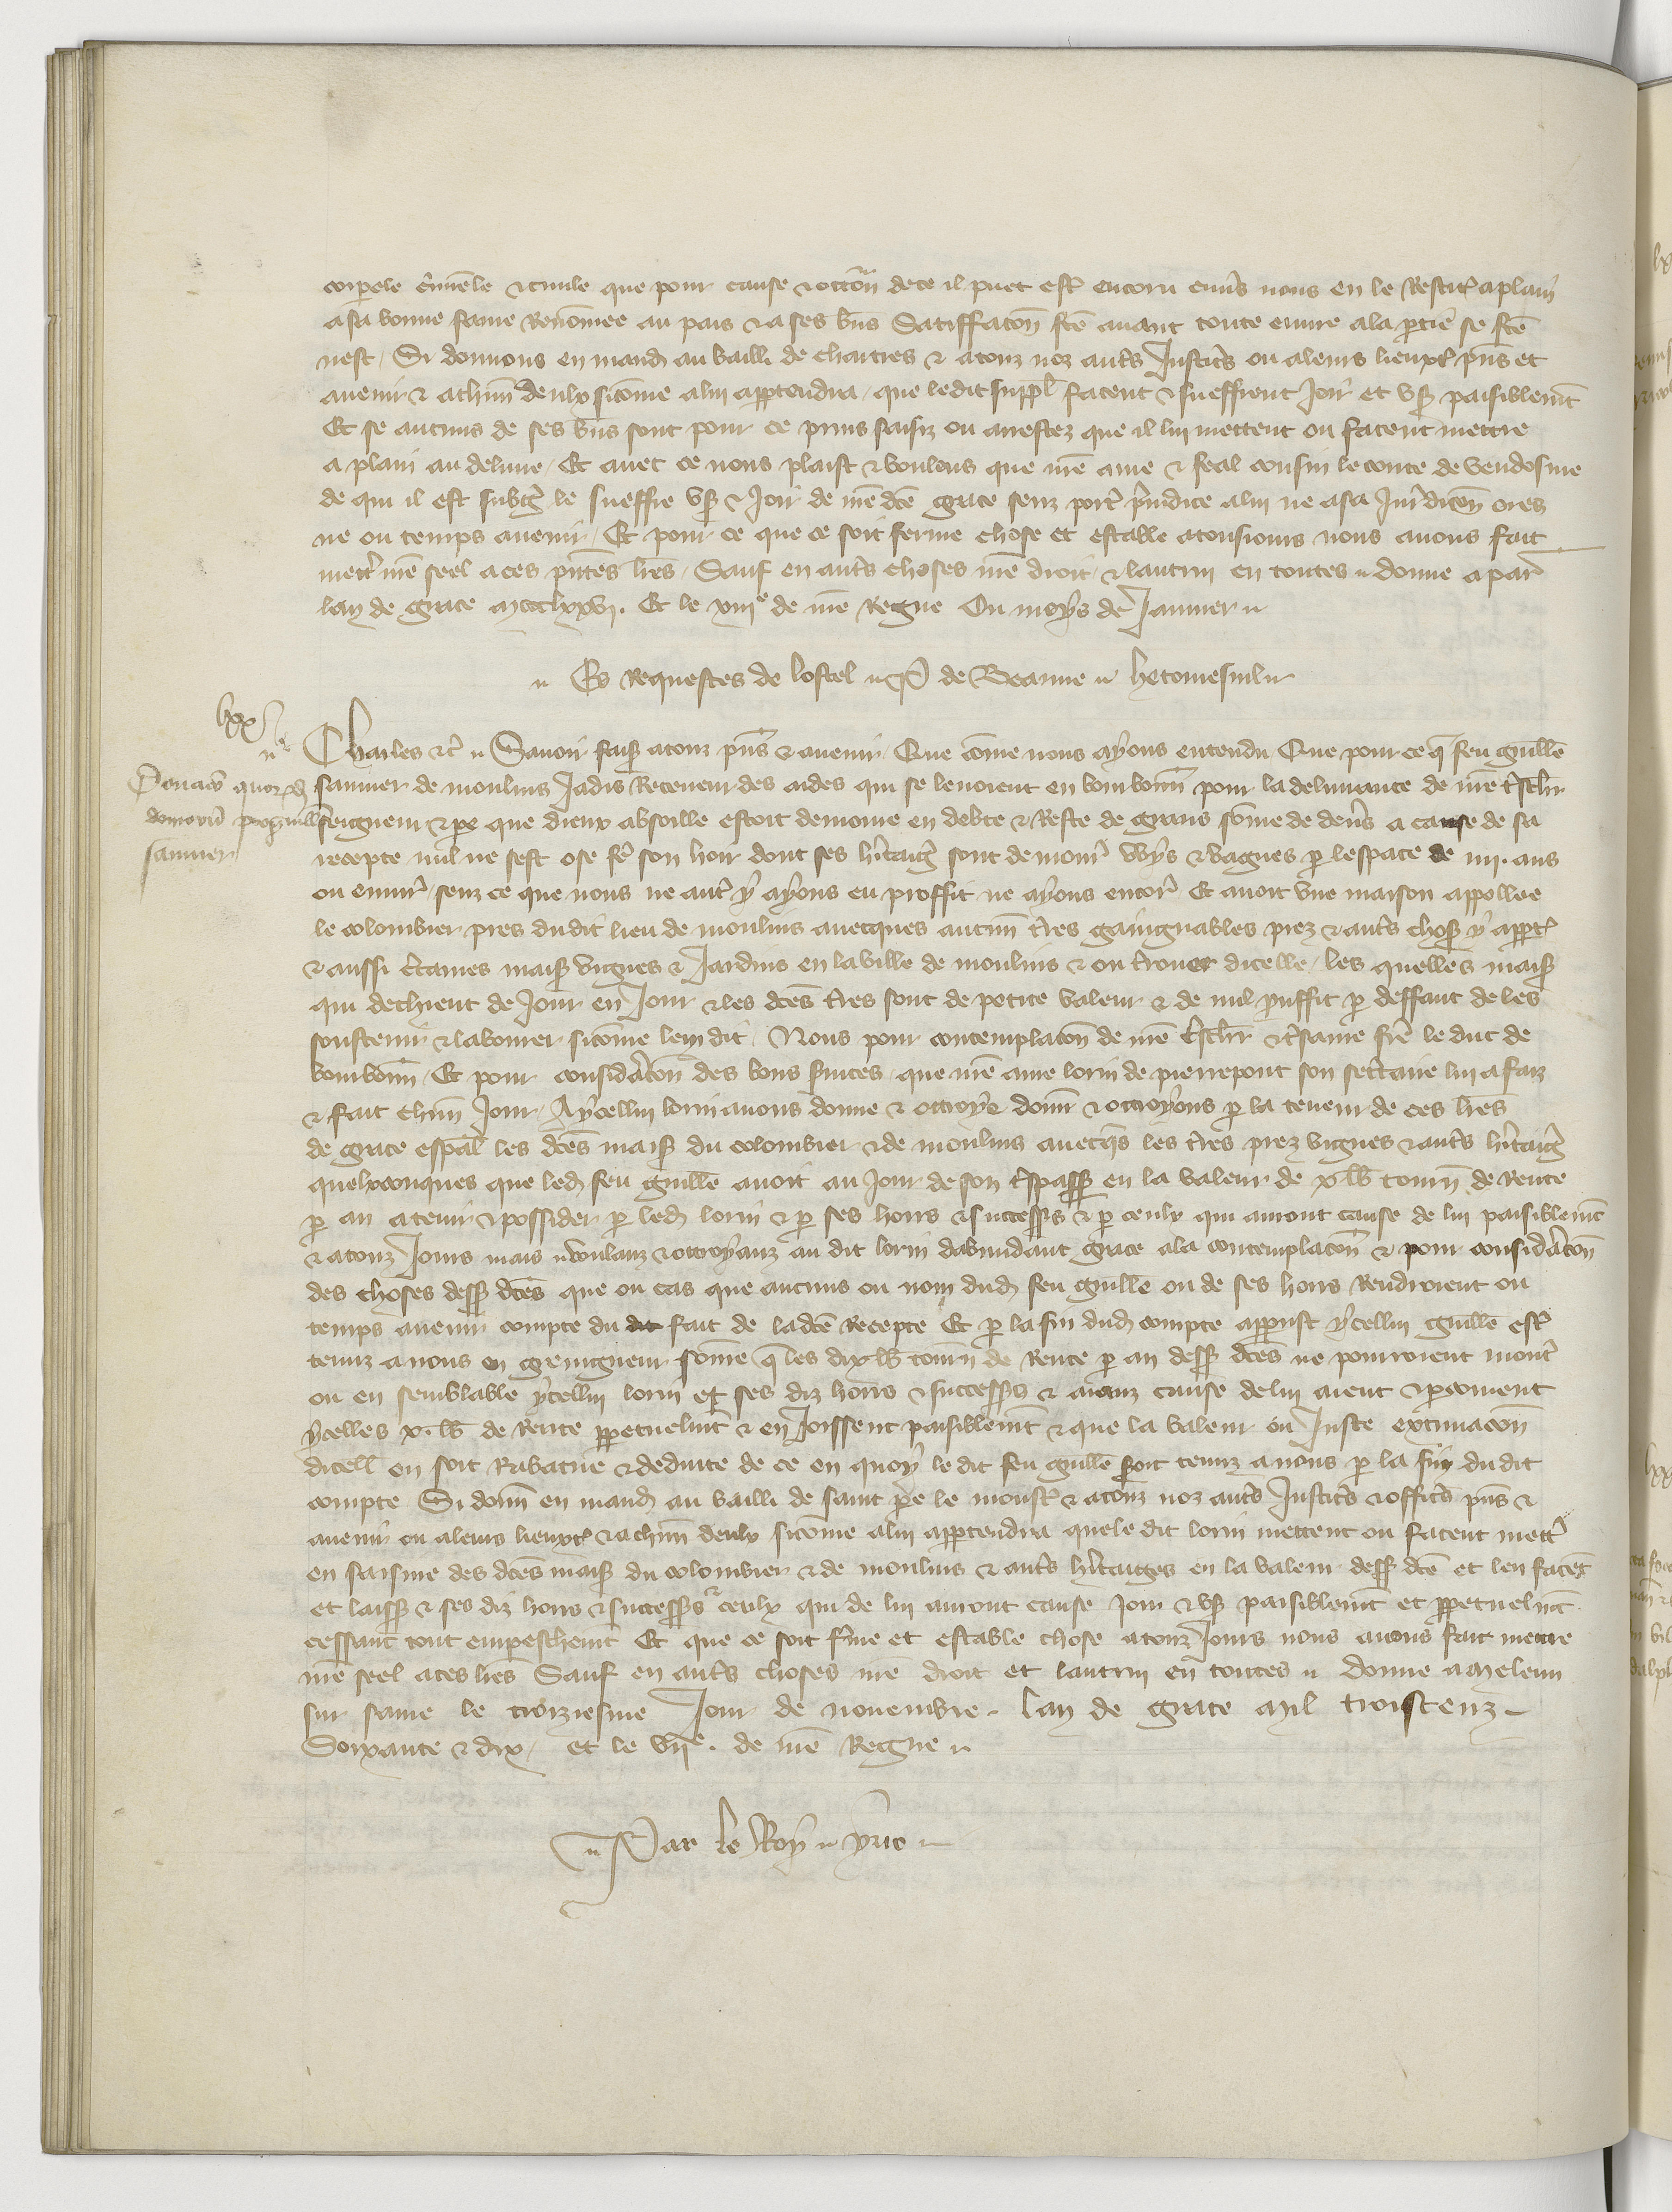 corporele criminele et civile que pour cause et occon de ce il puet estre encoru envers nous en le Restituer a plain
a sa bonne fame Renommee au pais et a ses biens Satiffacon fete avant toute euvre a la partie se fete
nest / Si donnons en mand au bailli de chartres et a touz noz autres Justiciers ou a leurs lieuxten pns et
avenir et a chun deulx si comme a lui appartendra / que ledit suppl facent et sueffrent Joir et user paisiblement
Et se aucuns de ses biens sont pour ce prins saisiz ou arrestez que il lui mettent ou facent mettre
a plain au delivre / Et avec ce nous plaist et voulons que nre ame et feal cousin le conte de vendosme
de qui il est subget le sueffre user et Joir de nre dce grace senz porter prejudice a lui ne a sa Juridiction ores
ne ou temps avenir / Et pour ce que ce soit ferme chose et estable a tousiours nous avons fait
mettre nre seel a ces pntes lres / Sauf en autres choses nre droit / et lautrui en toutes donne a par
lan de grace mccclxxvi. Et le xiiie de nre Regne Ou moys de Janvier
Es Requestes de lostel P de Beanne hetomesnil
lxx
Charles etc Savoir faisons a touz pns et avenir / Que comme nous ayons entendu Que pour ce que feu guille
saunier de moulins Jadis Receveur des aides qui se levoient en bourbonn pour la delivrance de nre treschr
Donacio quorumd domorum per guill
saunier
seigneur et pere que dieux absoille estoit demoure en debte et Reste de grans sommes de deniers a cause de sa
recepte nul ne sest ose fere son hoir dont ses heritaiges sont demoures wys et vagues par lespace de iiii. ans
ou environ / senz ce que nous ne autre y ayons eu proffit ne ayons encores Et avoit une maison appellee
le colombier pres dudit lieu de moulins avecques aucunes terres gaingnables prez et autres choses y appart
et aussi certaines maisons vignes et Jardins en la ville de moulins et ou terrouer dicelle / les quelles maisons
qui dechient de Jour en Jour et les dces terres sont de petite valeur et de nul prouffit par deffaut de les
soustenir et labourer si comme len dit. Nous pour contemplacon de nre treschr et tresame frere le duc de
bourbonn / Et pour consideracon des bons services que nre ame lorin de pierrepont son secretaire lui a faiz
et fait chun Jour / A ycellui lorin avons donne et octroye donn et octroyons par la teneur de ces lres
de grace espal les dces maisons du colombier et de moulins avecques les terres prez vignes et autres heritaiges
quelxconques que led feu guille avoit au Jour de son trespass en la valeur de x lb tourn de Rente
par an a tenir et possider par led lorin et par ses hoirs et successrs et par ceulx qui auront cause de lui paisiblement
et a touz Jours mais voulanz et octroyanz au dit lorin dabundant grace a la contemplacon et pour consideracon
des choses dess dces que ou cas que aucuns ou nom dud feu guille ou de ses hoirs Rendroient ou
temps avenir compte du dit fait de ladce Recepte Et par la fin dud compte apparust ycellui guille estre
tenuz a nous en greingneur somme que les dix lb tourn de Rente par an dess dces ne pourroient monter
ou en semblable ycellui lorin et ses diz hoirs et successrs et aianz cause de lui aient et parcoivent
ycelles x. lb de Rente perpetuelment et en Joissent paisiblement et que la valeur ou Juste extimacon
dicell en soit Rabatue et deduite de ce en quoy le dit feu guille seroit tenuz a nous par la fin du dit
compte Si donn en mand au bailli de saint pere le moustier et a touz noz autres Justiciers et officiers pns et
avenir ou a leurs lieuxten et a chun deulx si comme a lui appartendra que le dit lorin mettent ou facent mettre
en saisine des dces maisons du colombier et de moulins et autres heritaiges en la valeur dess dce et len facent
et laiss et ses diz hoirs et successrs et ceulx qui de lui auront cause Joir et user paisiblement et perpetuelment
cessant tout empeschement Et que ce soit ferme et estable chose a touz Jours nous avons fait mettre
nre seel a ces lres Sauf en autres choses nre droit et lautrui en toutes Donne a meleun
sur saine le troiziesme Jour de novembre lan de grace mil troiscenz
Soixante et dix / et le viie. de nre Regne
Par le Roy yvie